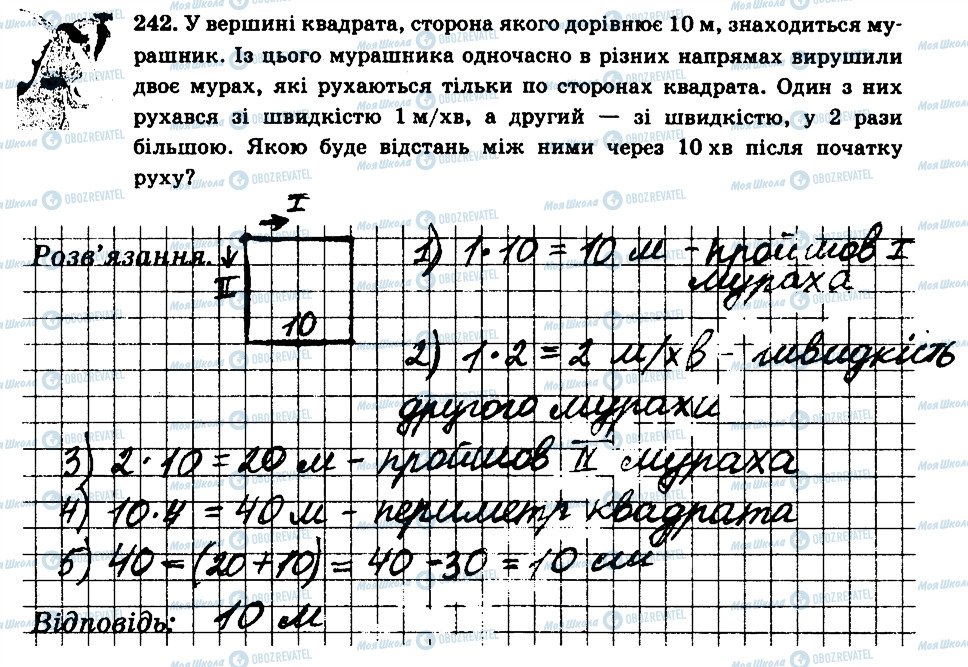 242. У вершині квадрата, сторона якого дорівнює 10 м, знаходиться му-
рашник. Із цього мурашника одночасно в різних напрямах вирушили
двоє мурах, які рухаються тільки по сторонах квадрата. Один з них
рухався зі швидкістю 1 м/хв, а другий — зі швидкістю, у 2 рази
більшою. Якою буде відстань між ними через 10 хв після початку
руху?
I
Розв'язання.
II
10
1) 1·10 = 10 м - пройшов I
мураха
2) 1·2 = 2 м/хв - швидкість
другого мурахи
3) 2·10 = 20 м - пройшов II мураха
4) 10·4 = 40 м - периметр квадрата
5) 40 = (20+10) = 40 - 30 = 10 см
Відповідь: 10 м
МояШкола OBOZREVATEL